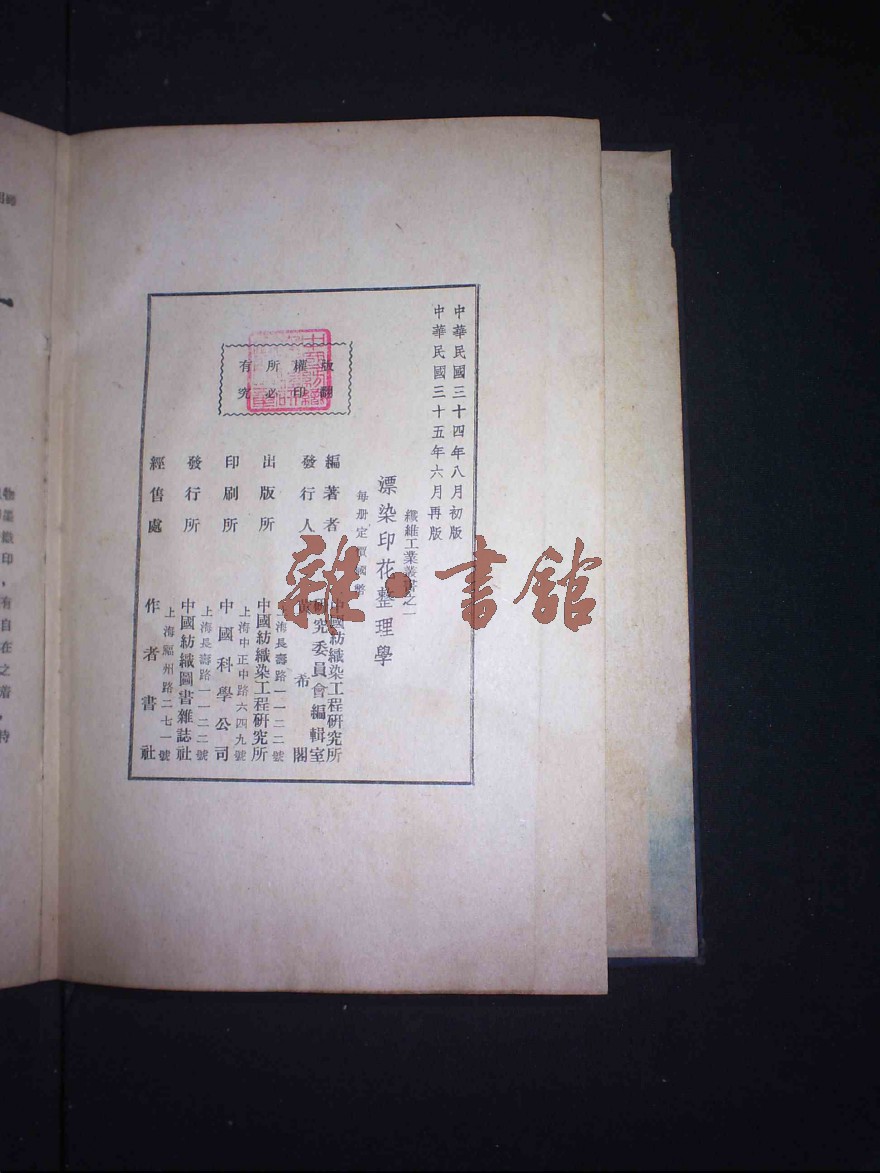 中華民國三十四年八月初版
中華民國三十五年六月再版
纖維工業叢書之一
漂染印花整理學
每册定價國幣
版權所有
翻印必究
編著者 中國紡織染工程研究所
研究委員會編輯室
發行人 希閣
出版所 中國紡織染工程研究所
上海長壽路一一二二號
印刷所 中國科學公司
上海中正中路六四九號
發行所 中國紡織圖書雜誌社
上海長壽路一一二二號
經售處 作者書社
上海福州路二七一號
雜·書館